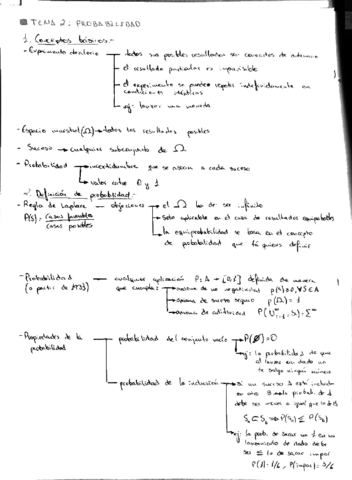 TEMA 2: PROBABILIDAD
1. Conceptos básicos:
- Experimento aleatorio
todos sus posibles resultados son conocidos de antemano
el resultado particular es impredecible
el experimento se puede repetir indefinidamente en
condiciones idénticas
ej: lanzar una moneda
- Espacio muestral (Ω) → todos los resultados posibles
- Suceso → cualquier subconjunto de Ω
- Probabilidad
incertidumbre que se asocia a cada suceso
valores entre 0 y 1
Definición de probabilidad:
- Regla de Laplace → objeciones → el Ω ha de ser finito
P(S) = casos favorables
casos posibles
solo aplicable en el caso de resultados equiprobables
la equiprobabilidad se basa en el concepto
de probabilidad que tú quieres definir
- Probabilidad
(a partir de 1933)
cualquier aplicación P: A → [0,1] definida de manera
que cumpla:
axioma de no negatividad P(S)≥0, ∀S∈A
axioma de suceso seguro P(Ω)=1
axioma de aditividad
- Propiedades de la
probabilidad
probabilidad del conjunto vacío → P(Ø)=0
ej: la probabilidad de que
al lanzar un dado no
te salga ningún número
probabilidad de la inclusión
si un suceso A está incluido
en otro B
debe ser menor o igual que la de B
ej: la prob. de sacar un 1 en un
lanzamiento de dado debe
ser ≤ la de sacar impar
P(1)=1/6, P(impar)=3/6